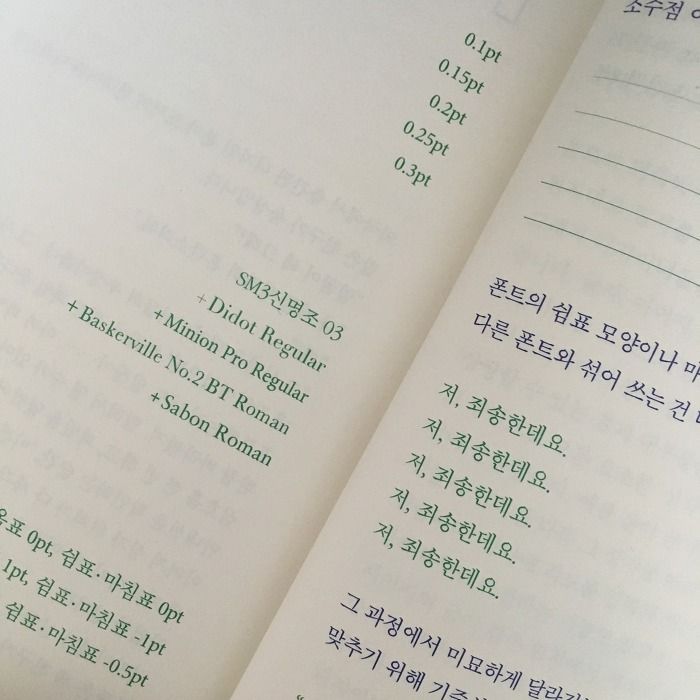 0.1pt
0.15pt
0.2pt
0.25pt
0.3pt
SM3신명조 03
+Didot Regular
+Minion Pro Regular
+Baskerville No.2 BT Roman
+Sabon Roman
0pt, 쉼표·마침표 0pt
1pt, 쉼표·마침표 -1pt
쉼표·마침표 -0.5pt
소수점
폰트의 쉼표 모양이나
다른 폰트와 섞어 쓰는 건
저, 죄송한데요.
저, 죄송한데요.
저, 죄송한데요.
저, 죄송한데요.
저, 죄송한데요.
그 과정에서 미묘하게
맞추기 위해